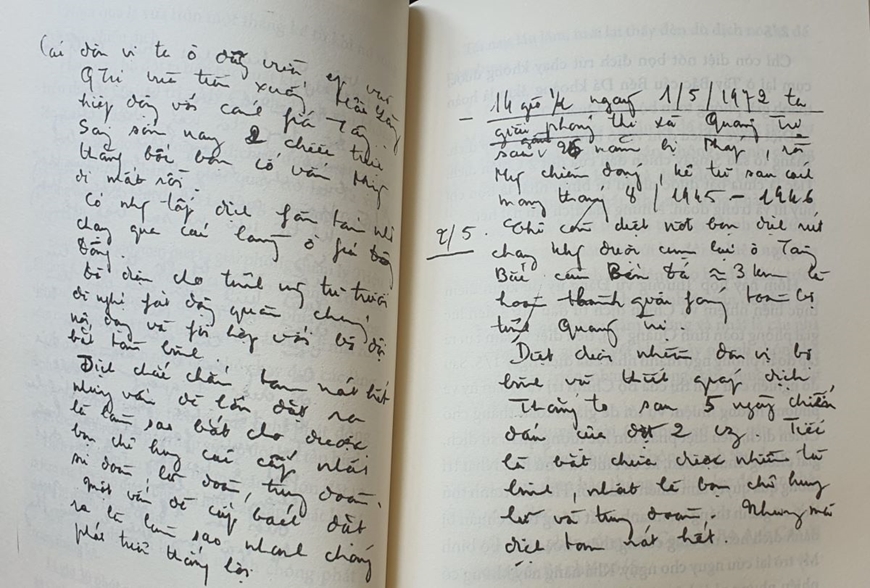 Các đơn vị ta ở đường vẫn
QTrị vừa tiến xuống
hiệp đồng với cánh
Sáng sớm nay 2 chiếc trực
thăng bốc bọn cố vấn Mỹ
đi mất rồi.
Có nhg tốp địch tàn
chạy qua các làng ở
Đông.
Đã điện cho tỉnh
đề nghị fát động quần chúng
nổi dậy và fối hợp với bộ đội
bắt tàn binh.
Địch chắc chắn tan nát hết
nhưng vấn đề lớn đặt ra
là làm sao bắt cho được
bọn chỉ huy các cấp nhất
sư đoàn lữ đoàn, trung đoàn.
Một vấn đề cấp bách đặt
ra là làm sao nhanh chóng
phát triển thắng lợi
– 14 giờ ngày 1/5/1972 ta
giải phóng thị xã Quảng Trị
sau gần 26 năm bị Pháp, rồi
Mỹ chiếm đóng, kể từ sau cách
mạng tháng 8/1945 – 1946
2/5. Chỉ còn diệt nốt bọn địch rút
chạy khg được cụm lại ở Tây
Bắc cầu Bến Đá ≈ 3 km là
hoàn thành giải fóng toàn bộ
tỉnh Quảng Trị.
Diệt được nhiều đơn vị bộ
binh và thiết giáp địch
Thắng to sau 5 ngày chiến
đấu của đợt 2 Tiếc
là bắt chưa được nhiều tù
binh, nhất là bọn chỉ huy
lữ và trung đoàn, Nhưng mà
địch tan nát hết.